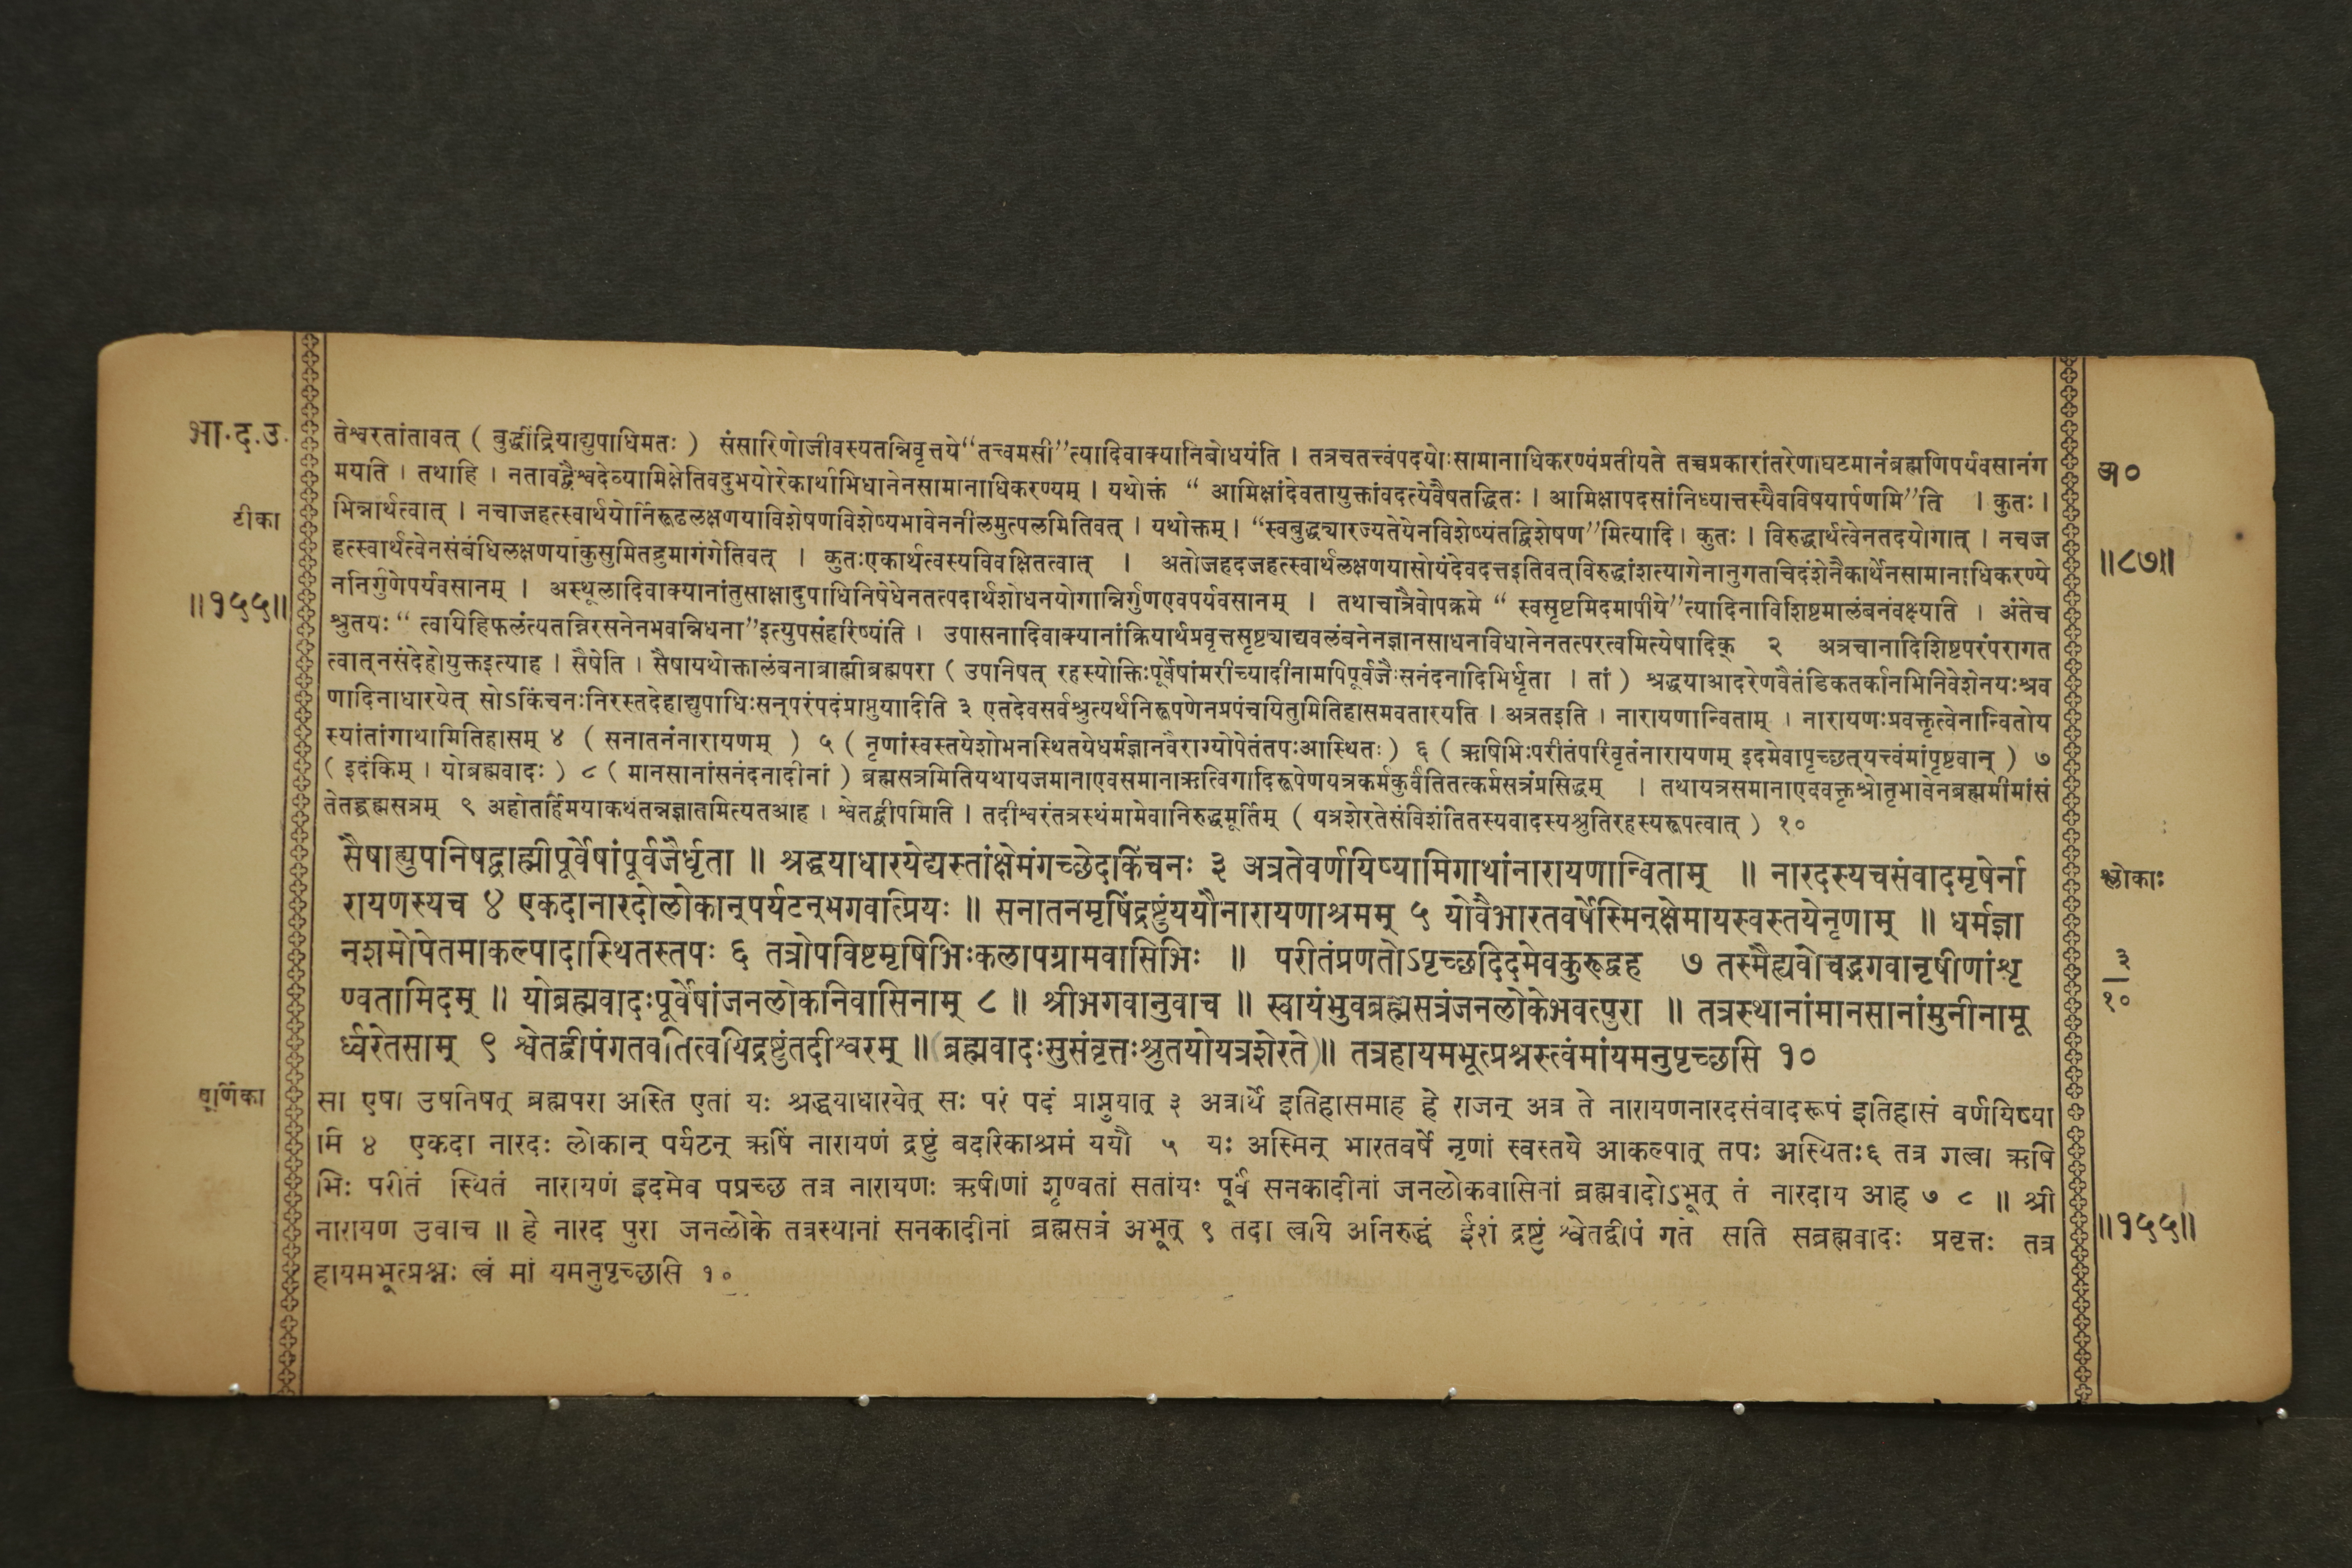 भा.द.उ.
टीका
॥१५५॥
तेश्वरतांतावत् ( बुद्धींद्रियाद्युपाधिमतः ) संसारिणोजीवस्यतन्निवृत्तये“तत्त्वमसी”त्यादिवाक्यानिबोधयंति । तत्रचतत्त्वंपदयोःसामानाधिकरण्यंप्रतीयते तच्चप्रकारांतरेणाघटमानंब्रह्मणिपर्यवसानंग
मयति । तथाहि । नतावद्वैश्वदेव्यामिक्षेतिवदुभयोरेकार्थाभिधानेनसामानाधिकरण्यम् । यथोक्तं “ आमिक्षांदेवतायुक्तांवदत्येवैषतद्धितः । आमिक्षापदसांनिध्यात्तस्यैवविषयार्पणमि”ति । कुतः ।
भिन्नार्थत्वात् । नचाजहत्स्वार्थयोर्निरूढलक्षणयाविशेषणविशेष्यभावेननीलमुत्पलमितिवत् । यथोक्तम् । “स्वबुद्ध्यारज्यतेयेनविशेष्यंतद्विशेषण”मित्यादि । कुतः । विरुद्धार्थत्वेनतदयोगात् । नचज
हत्स्वार्थत्वेनसंबंधिलक्षणयाकुसुमितद्रुमागंगेतिवत् । कुतःएकार्थत्वस्यविवक्षितत्वात् । अतोजहदजहत्स्वार्थलक्षणयासोयंदेवदत्तइतिवत्विरुद्धांशत्यागेनानुगतचिदंशेनैकार्थेनसामानाधिकरण्ये
ननिर्गुणेपर्यवसानम् । अस्थूलादिवाक्यानांतुसाक्षादुपाधिनिषेधेनतत्पदार्थशोधनयोगान्निर्गुणएवपर्यवसानम् । तथाचात्रैवोपक्रमे “ स्वसृष्टमिदमापीये”त्यादिनाविशिष्टमालंबनंवक्ष्यति । अंतेच
श्रुतयः “ त्वयिहिफलंत्यतन्निरसनेनभवन्निधना”इत्युपसंहरिष्यंति । उपासनादिवाक्यानांक्रियार्थप्रवृत्तसृष्ट्याद्यवलंबनेनज्ञानसाधनविधानेनतत्परत्वमित्येषादिक् २ अत्रचानादिशिष्टपरंपरागत
त्वात्नसंदेहोयुक्तइत्याह । सैषेति । सैषायथोक्तालंबनाब्राह्मीब्रह्मपरा ( उपनिषत् रहस्योक्तिःपूर्वेषांमरीच्यादीनामपिपूर्वजैःसनंदनादिभिर्धृता । तां ) श्रद्धयाआदरेणवैतंडिकतर्कानभिनिवेशेनयःश्रव
णादिनाधारयेत् सोऽकिंचनःनिरस्तदेहाद्युपाधिःसन्परंपदंप्राप्नुयादिति ३ एतदेवसर्वश्रुत्यर्थनिरूपणेनप्रपंचयितुमितिहासमवतारयति । अत्रतइति । नारायणान्विताम् । नारायणःप्रवक्तृत्वेनान्वितोय
स्यांतांगाथामितिहासम् ४ ( सनातनंनारायणम् ) ५ ( नृणांस्वस्तयेशोभनस्थितयेधर्मज्ञानवैराग्योपेतंतपःआस्थितः ) ६ ( ऋषिभिःपरीतंपरिवृतंनारायणम् इदमेवापृच्छत्यत्त्वंमांपृष्टवान् ) ७
( इदंकिम् । योब्रह्मवादः ) ८ ( मानसानांसनंदनादीनां ) ब्रह्मसत्रमितियथायजमानाएवसमानाऋत्विगादिरूपेणयत्रकर्मकुर्वंतितत्कर्मसत्रंप्रसिद्धम् । तथायत्रसमानाएववक्तृश्रोतृभावेनब्रह्ममीमांसं
तेतद्ब्रह्मसत्रम् ९ अहोतर्हिमयाकथंतन्नज्ञातमित्यतआह । श्वेतद्वीपमिति । तदीश्वरंतत्रस्थंमामेवानिरुद्धमूर्तिम् ( यत्रशेरतेसंविशंतितस्यवादस्यश्रुतिरहस्यरूपत्वात् ) १०
सैषाह्युपनिषद्ब्राह्मीपूर्वेषांपूर्वजैर्धृता ॥ श्रद्धयाधारयेद्यस्तांक्षेमंगच्छेदकिंचनः ३ अत्रतेवर्णयिष्यामिगाथांनारायणान्विताम् ॥ नारदस्यचसंवादमृषेर्ना
रायणस्यच ४ एकदानारदोलोकान्पर्यटन्भगवत्प्रियः ॥ सनातनमृषिंद्रष्टुंययौनारायणाश्रमम् ५ योवैभारतवर्षेस्मिन्क्षेमायस्वस्तयेनृणाम् ॥ धर्मज्ञा
नशमोपेतमाकल्पादास्थितस्तपः ६ तत्रोपविष्टमृषिभिःकलापग्रामवासिभिः ॥ परीतंप्रणतोऽपृच्छदिदमेवकुरूद्वह ७ तस्मैह्यवोचद्भगवानृषीणांशृ
ण्वतामिदम् ॥ योब्रह्मवादःपूर्वेषांजनलोकनिवासिनाम् ८ ॥ श्रीभगवानुवाच ॥ स्वायंभुवब्रह्मसत्रंजनलोकेभवत्पुरा ॥ तत्रस्थानांमानसानांमुनीनामू
र्ध्वरेतसाम् ९ श्वेतद्वीपंगतवतित्वयिद्रष्टुंतदीश्वरम् ॥ (ब्रह्मवादःसुसंवृत्तःश्रुतयोयत्रशेरते)॥ तत्रहायमभूत्प्रश्नस्त्वंमांयमनुपृच्छसि १०
सा एषा उपनिषत् ब्रह्मपरा अस्ति एतां यः श्रद्धयाधारयेत् सः परं पदं प्राप्नुयात् ३ अत्रार्थे इतिहासमाह हे राजन् अत्र ते नारायणनारदसंवादरूपं इतिहासं वर्णयिष्या
मि ४ एकदा नारदः लोकान् पर्यटन् ऋषिं नारायणं द्रष्टुं बदरिकाश्रमं ययौ ५ यः अस्मिन् भारतवर्षे नृणां स्वस्तये आकल्पात् तपः अस्थितः६ तत्र गत्वा ऋषि
भिः परीतं स्थितं नारायणं इदमेव पप्रच्छ तत्र नारायणः ऋषीणां शृण्वतां सतांयः पूर्वं सनकादीनां जनलोकवासिनां ब्रह्मवादोऽभूत् तं नारदाय आह ७ ८ ॥ श्री
नारायण उवाच ॥ हे नारद पुरा जनलोके तत्रस्थानां सनकादीनां ब्रह्मसत्रं अभूत् ९ तदा त्वयि अनिरुद्धं ईशं द्रष्टुं श्वेतद्वीपं गते सति सब्रह्मवादः प्रवृत्तः तत्र
हायमभूत्प्रश्नः त्वं मां यमनुपृच्छसि १०
अ०
॥८७॥
श्लोकाः
३
१०
॥१५५॥